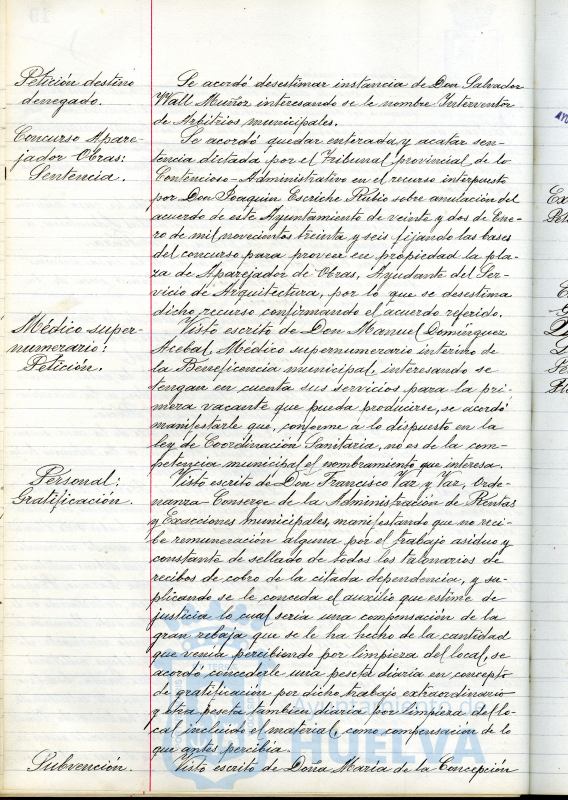 Petición destino
denegado.
Se acordó desestimar instancia de Don Salvador
Wall Muñoz interesando se le nombre Interventor
de Arbitrios municipales.
Concurso Apare-
jador Obras:
Sentencia.
Se acordó quedar enterada y acatar sen-
tencia dictada por el Tribunal provincial de lo
Contencioso-Administrativo en el recurso interpuesto
por Don Joaquin Escriche Rubio sobre anulación del
acuerdo de este Ayuntamiento de veinte y dos de Ene-
ro de mil novecientos treinta y seis fijando las bases
del concurso para proveer en propiedad la pla-
za de Aparejador de Obras, Ayudante del Ser-
vicio de Arquitectura, por lo que se desestima
dicho recurso confirmando el acuerdo referido.
Médico super-
numerario:
Petición.
Visto escrito de Don Manuel Domínguez
Acebal, Médico supernumerario interino de
la Beneficencia municipal, interesando se
tengan en cuenta sus servicios para la pri-
mera vacante que pueda producirse, se acordó
manifestarle que, conforme a lo dispuesto en la
ley de Coordinación Sanitaria, no es de la com-
petencia municipal el nombramiento que interesa.
Personal:
Gratificación.
Visto escrito de Don Francisco Vaz y Vaz, Orde-
nanza-Conserge de la Administración de Rentas
y Exacciones municipales, manifestando que no reci-
be remuneración alguna por el trabajo asiduo y
constante de sellado de todos los talonarios de
recibos de cobro de la citada dependencia, y su-
plicando se le conceda el auxilio que estime de
justicia lo cual sería una compensación de la
gran rebaja que se le ha hecho de la cantidad
que venía percibiendo por limpieza del local, se
acordó concederle una peseta diaria en concepto
de gratificación por dicho trabajo extraordinario
y otra peseta tambien diaria por limpieza del lo-
cal incluido el material, como compensación de lo
que antes percibía.
Subvención.
Visto escrito de Doña María de la Concepción
Ayuntamiento de
HUELVA